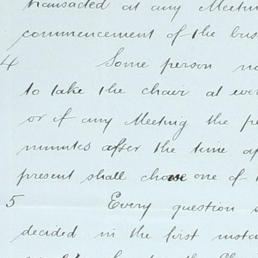 transacted at any Meeting
commencement of the bus
4 Some person no
to take the chair at ever
or if any Meeting the pe
minutes after the time ap
present shall chose one of
5 Every question s
decided in the first insta